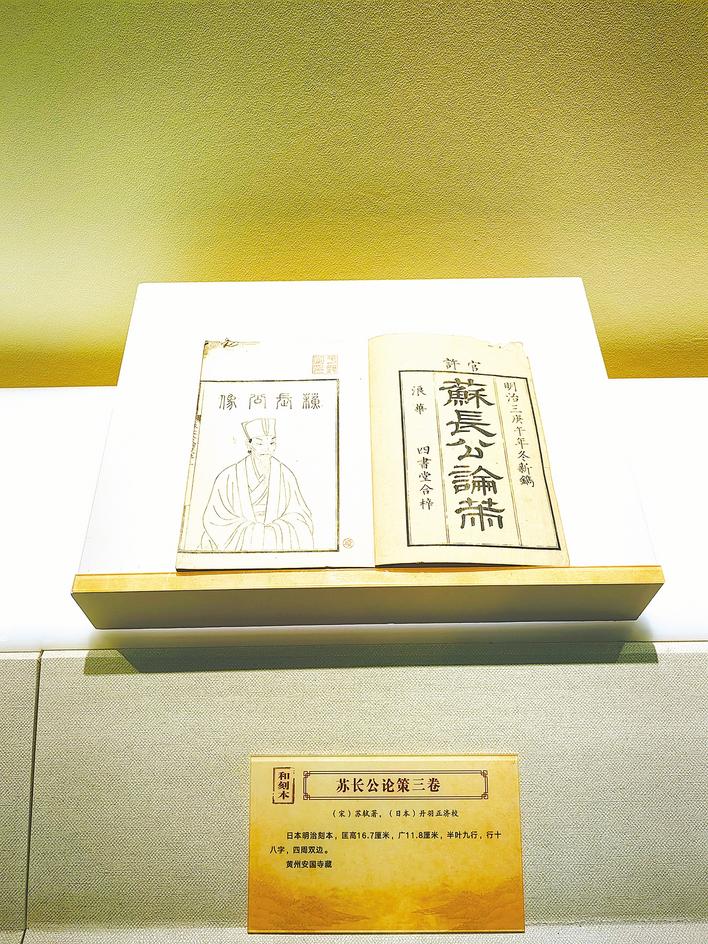 蘇長公像
官許
明治三庚午年冬新鐫
蘇長公論策
浪華 四書堂合梓
和刻本
苏长公论策三卷
（宋）苏轼著，（日本）丹羽正济校
日本明治刻本，匡高16.7厘米，广11.8厘米，半叶九行，行十
八字，四周双边。
黄州安国寺藏